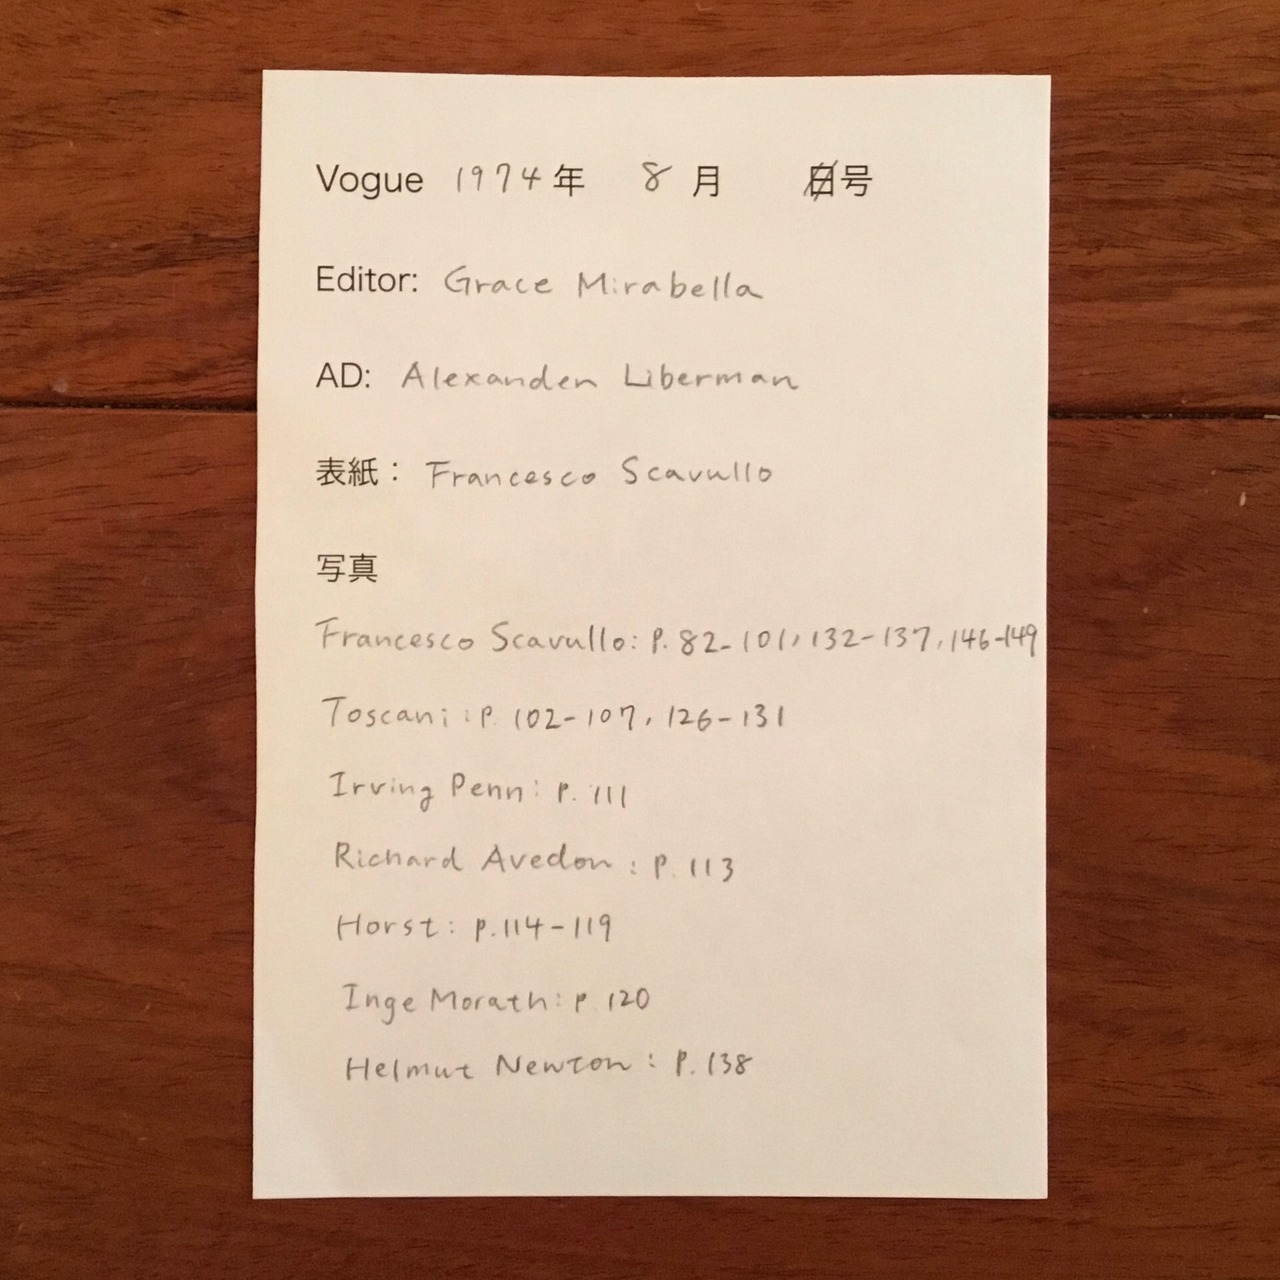 Vogue 1974年 8月 日号
Editor: Grace Mirabella
AD: Alexander Liberman
表紙： Francesco Scavullo
写真
Francesco Scavullo: P. 82-101, 132-137, 146-149
Toscani: P. 102-107, 126-131
Irving Penn: P. 111
Richard Avedon: P. 113
Horst: P. 114-119
Inge Morath: P. 120
Helmut Newton: P. 138